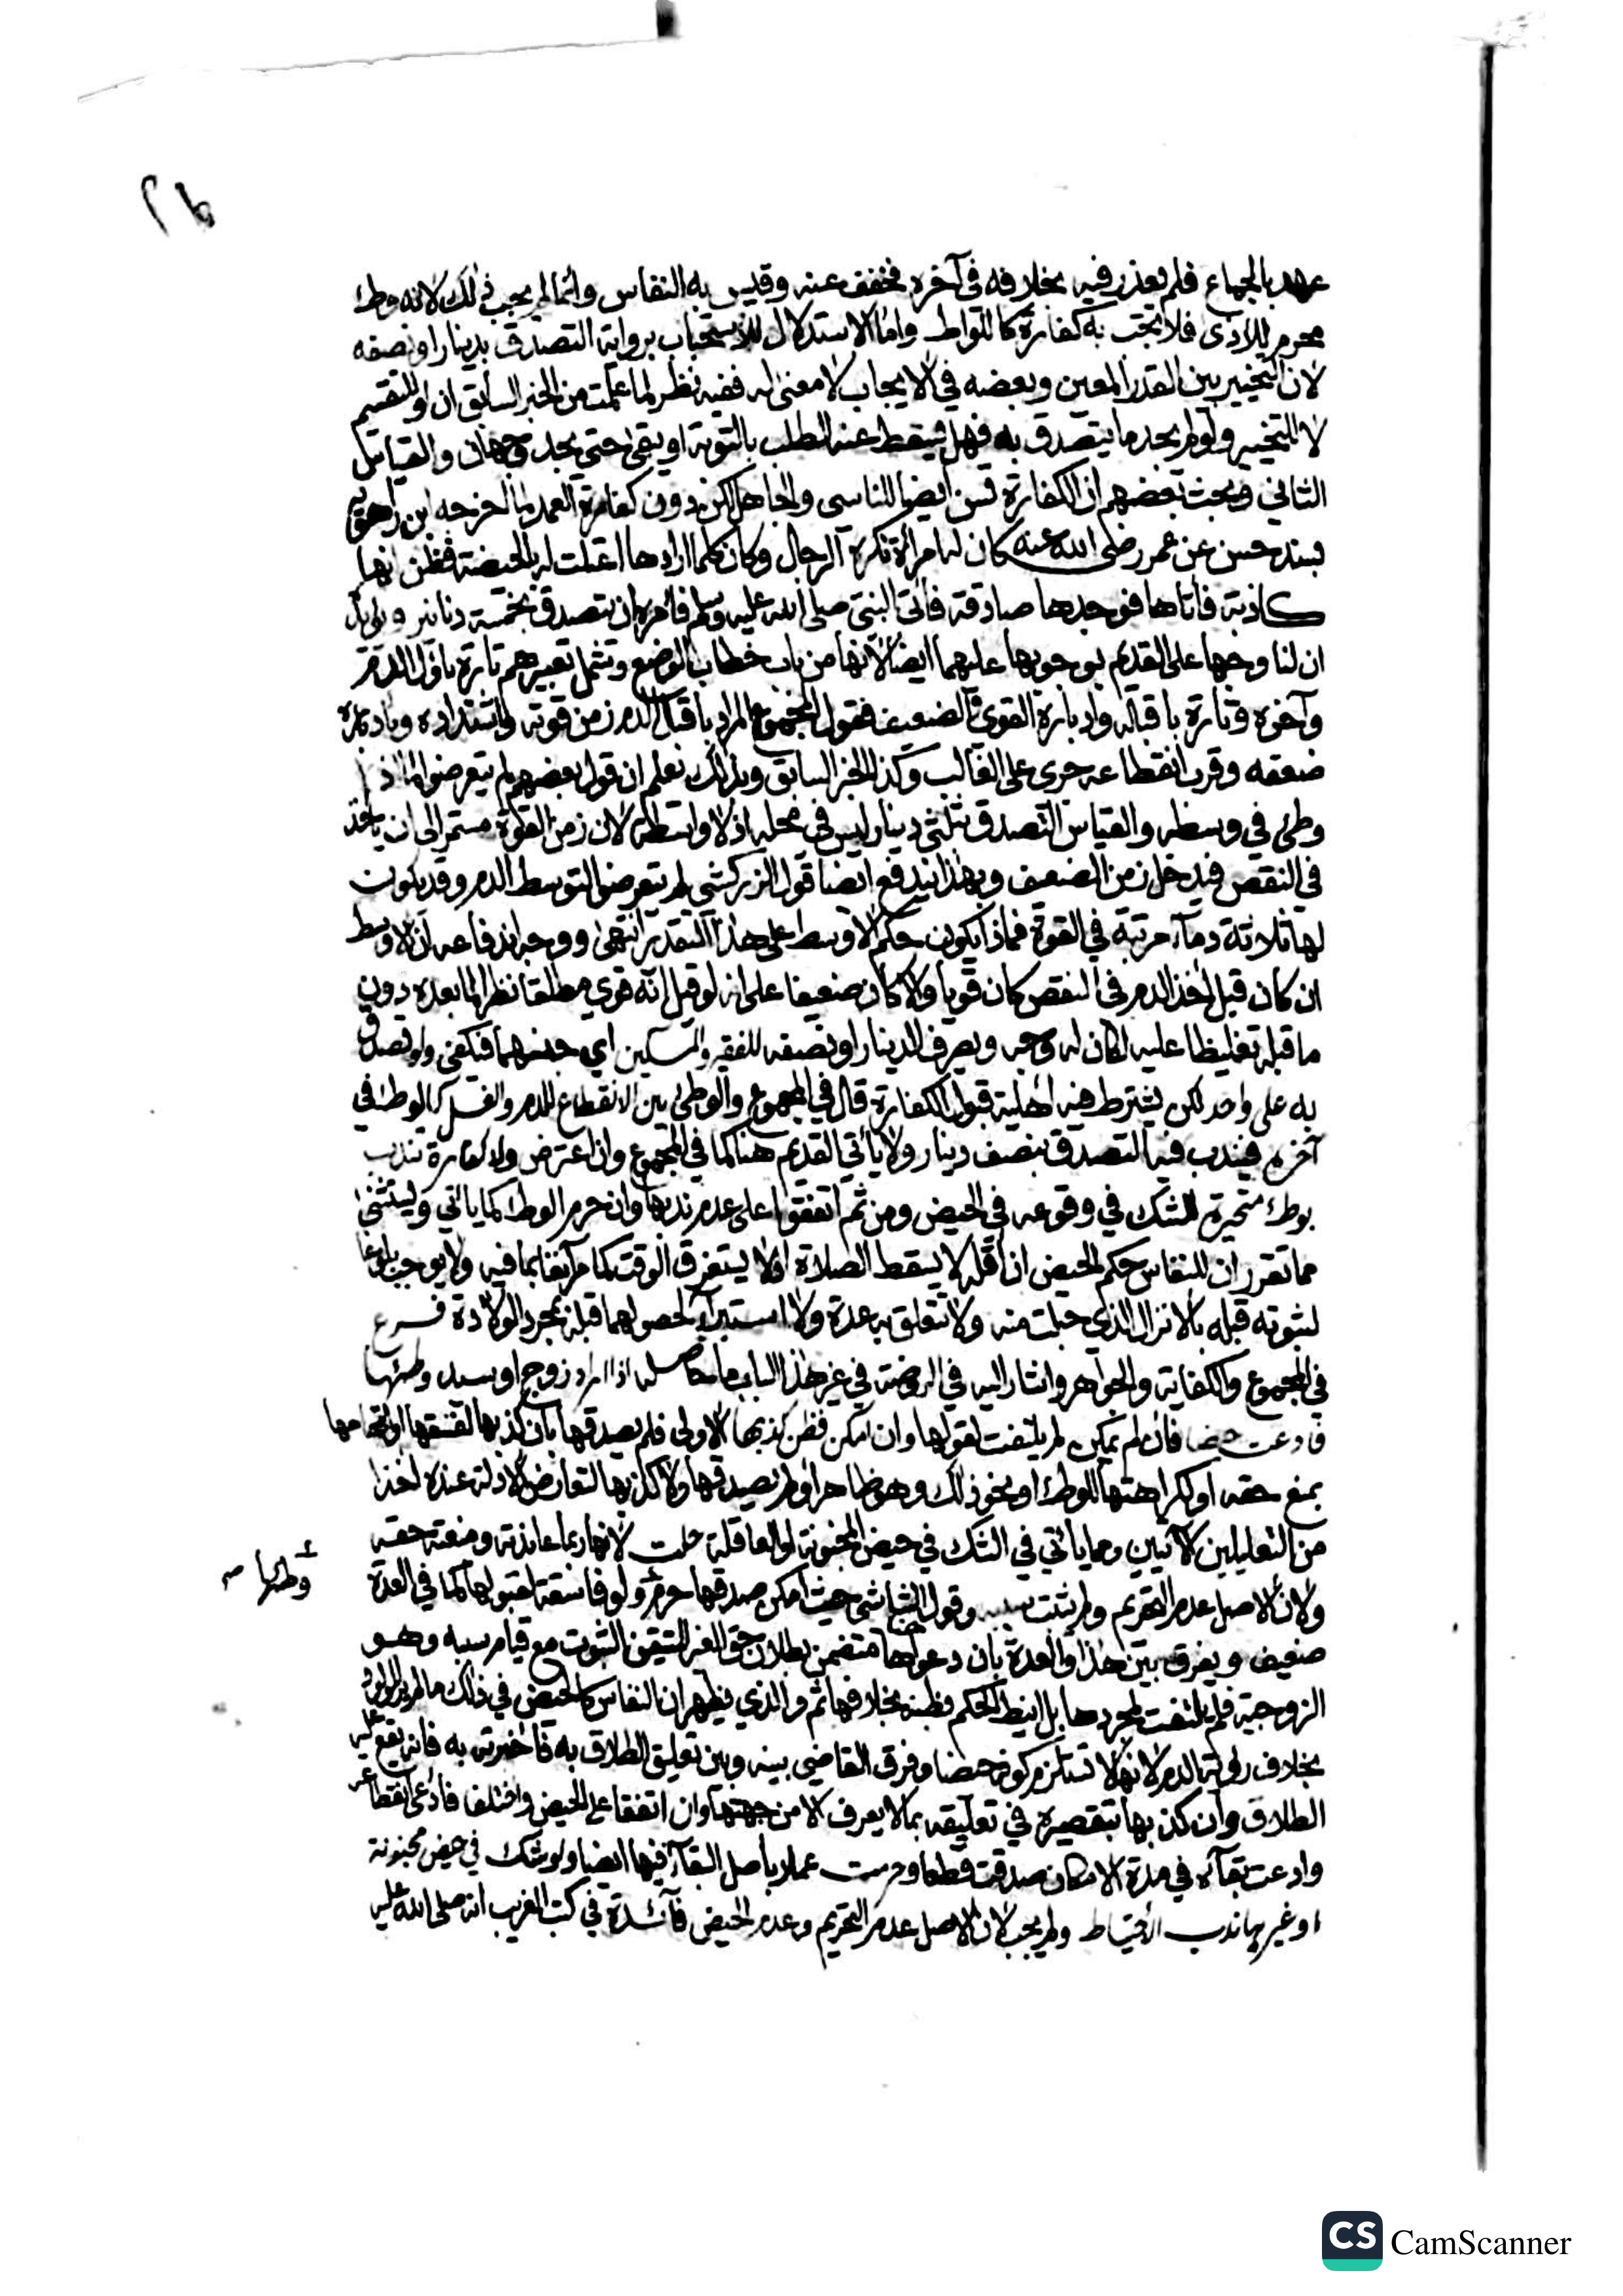 عهد بالجماع فلم يعذر فيه بخلافه في آخره فخفف عنه وقيس به النفاس وانما لم يجب ذلك لانه وطء
محرم للاذى فلا تجب به كفارة كاللواط واما الاستدلال للاستحباب برواية التصدق بدينار او نصفه
لان التخيير بين القدر المعين وبعضه في الايجاب لا معنى له ففيه نظر لما علمت من الخبر السابق ان او للتقسيم
لا للتخيير ولو لم يجد ما يتصدق به فهل يسقط عنه الطلب بالتوبة او يبقى حتى يجد وجهان والقياس
الثاني وبحث بعضهم ان الكفارة تسن ايضا للناسي والجاهل لكن دون كفارة العمد لما اخرجه ابن راهويه
بسند حسن عن عمر رضي الله عنه كان له امرأة تكره الرجال وكان كلما ارادها اعتلت له بالحيضة فظن انها
كاذبة فأتاها فوجدها صادقة فأتى النبي صلى الله عليه وسلم فأمره ان يتصدق بخمسة دنانير
ان لنا وجها على القديم بوجوبها عليهما ايضا لانها من باب خطاب الوضع وتشمل تعبيرهم تارة باول الدم
وآخره وتارة باقباله وادباره القوي والضعيف فقول المجموع المراد باقبال الدم زمن قوته واشتداده وبادباره
ضعفه وقرب انقطاعه جرى على الغالب وكذا الخبر السابق وبذلك تعلم ان قول بعضهم لم يتعرضوا لما اذا
وطئ في وسطه والقياس التصدق بثلثي دينار ليس في محله اذ لا واسطة لان زمن القوة مستمر الى ان ياخذ
في النقص فيدخل زمن الضعيف وبهذا يندفع ايضا قول الزركشي لم يتعرضوا لتوسط الدم وقد يكون
لها ثلاثة دماء مرتبة في القوة فماذا يكون حكم الاوسط على هذا التقدير انتهى ووجه اندفاعه ان الاوسط
ان كان قبل اخذ الدم في النقص كان قويا والا كان ضعيفا على انه لو قيل انه قوي مطلقا نظرا لما بعده دون
ما قبله تغليظا عليه لكان له وجه ويصرف الدينار او نصفه للفقير والمسكين اي جنسهما فيكفي ولو تصدق
به على واحد لكن يشترط فيه اهلية قبول الكفارة قال في المجموع والوطئ بين الانقطاع للدم والغسل كالوطء في
آخره فيندب فيه التصدق بنصف دينار ولا يأتي القديم هنا كما في المجموع وان اعترض ولا كفارة تندب
بوطء متحيرة للشك في وقوعه في الحيض ومن ثم اتفقوا على عدم ندبها وان حرم الوطء كما ياتي ويستثنى
مما تقرر ان للنفاس حكم الحيض ان اقله لا يسقط الصلاة اذ لا يستغرق الوقت كما مر آنفا بما فيه ولا يوجب بلوغا
لثبوته قبله بالانزال الذي حبلت منه ولا تتعلق به عدة ولا استبراء لحصولهما قبله بمجرد الولادة فرع
في المجموع والكفاية والجواهر واشار اليه في الروضة في غير هذا الباب ما حاصله اذا اراد زوج او سيد وطئها
فادعت حيضا فان لم يمكن لم يلتفت لقولها وان امكن فظن كذبها الاولى فلم يصدقها بان كذبها لفسقها او اتهامها
بمنع حقه او لكراهتها للوطء او نحو ذلك وهو ظاهر او لم يصدقها ولا كذبها لتعارض الادلة عنده اخذا
من التعليلين الآتيين ومما يأتي في الشك في حيض المجنونة او العاقلة حلت لانها ربما عاندته ومنعته حقه
ولان الاصل عدم التحريم ولم يثبت سببه وقول الشاشي حيث امكن صدقها حرم ولو فاسقة لقبولها كما في العدة
وطئها صـ
ضعيف ويفرق بين هذا والعدة بان دعواها متضمن بطلان حق الغير المتيقن الثبوت مع قيام سببه وهو
الزوجية فلم يلتفت لمجردها بل انيط الحكم بظنه بخلافها ثم والذي يظهر ان النفاس كالحيض في ذلك
بخلاف رؤية الدم لانها لا تستلزم كونه حيضا وفرق القاضي بينه وبين تعليق الطلاق به فاخبرته به فانه يقع عليه
الطلاق وان كذبها بتقصيره في تعليقه بما لا يعرف الا من جهتها وان اتفقا على الحيض واختلفا فادعى انقطاعه
وادعت بقآءه في مدة الامكان صدقت قطعا وحرمت عملا باصل البقآء فيها ايضا ولو شك في حيض مجنونة
او غيرها ندب الاحتياط ولم يجب لان الاصل عدم التحريم وعدم الحيض فآئدة في كتب الغريب انه صلى الله عليه
CS CamScanner